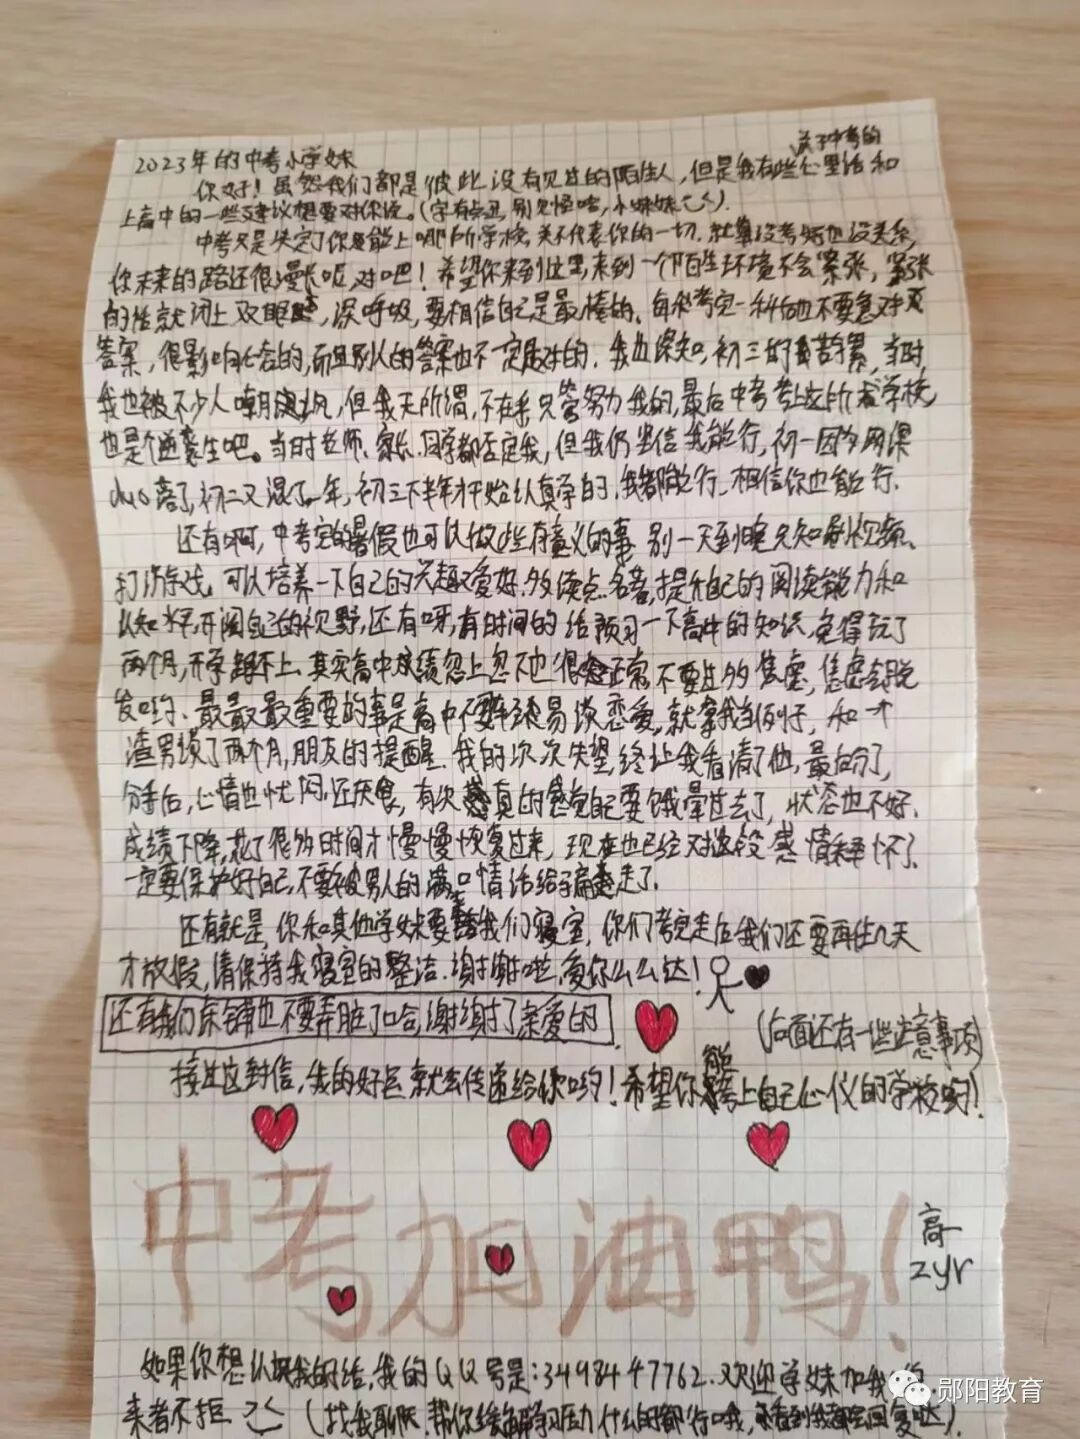 2023年的中考小学妹
关于中考的
你好！虽然我们都是彼此没有见过的陌生人，但是我有些心里话和
上高中的一些建议想要对你说。（字有点丑，别见怪哈，小妹妹
中考只是决定了你能上哪所学校，并不代表你的一切，就算没考好也没关系，
你未来的路还很漫长呢，对吧！希望你来到这里，来到一个陌生环境不会紧张，紧张
的话就闭上双眼，深呼吸，要相信自己是最棒的。每科考完一科后也不要急对
答案，很影响心态的，而且别人的答案也不一定是对的。我也深知，初三的苦累，当时
我也被不少人嘲讽，但我无所谓，不在乎只管努力我的，最后中考考上这所学校，
也是个逆袭生吧。当时老师、家长、同学都否定我，但我仍坚信我能行，初一因为网课
duo落了，初二又混了一年，初三下半年才开始认真学的，我都能行，相信你也能行。
还有啊，中考完的暑假也可以做些有意义的事，别一天到晚只知刷视频、
打游戏，可以培养一下自己的兴趣爱好，多读点名著，提升自己的阅读能力和
认知水平，开阔自己的视野，还有呀，有时间的话预习一下高中的知识，免得玩了
两个月，开学跟不上。其实高中成绩忽上忽下也很正常，不要过多焦虑，焦虑会脱
发哟、最最最重要的事是高中不要轻易谈恋爱，就拿我当例子，和一个
渣男谈了两个月，朋友的提醒，我的次次失望，终让我看清了他，最后分了，
分手后，心情也忧闷，还厌食，有次真的感觉自己要饿晕过去了，状态也不好，
成绩下降，花了很多时间才慢慢恢复过来，现在也已经对这段感情释怀了。
一定要保护好自己，不要被男人的满口情话给骗走了。
还有就是，你和其他学妹要来我们寝室，你们考完走后我们还要再住几天
才放假，请保持我寝室的整洁，谢谢啦，爱你么么哒！
还有我们床铺也不要弄脏了哈，谢谢了亲爱的
（后面还有一些注意事项）
接过这封信，我的好运就会传递给你哟！希望你能考上自己心仪的学校哟！
中考加油鸭！
高一
zyr
如果你想认识我的话，我的QQ号是：3498447762，欢迎学妹加我
来者不拒（找我聊天，帮你缓解学习压力什么的都行哦，看到我都会回复哒）
郧阳教育